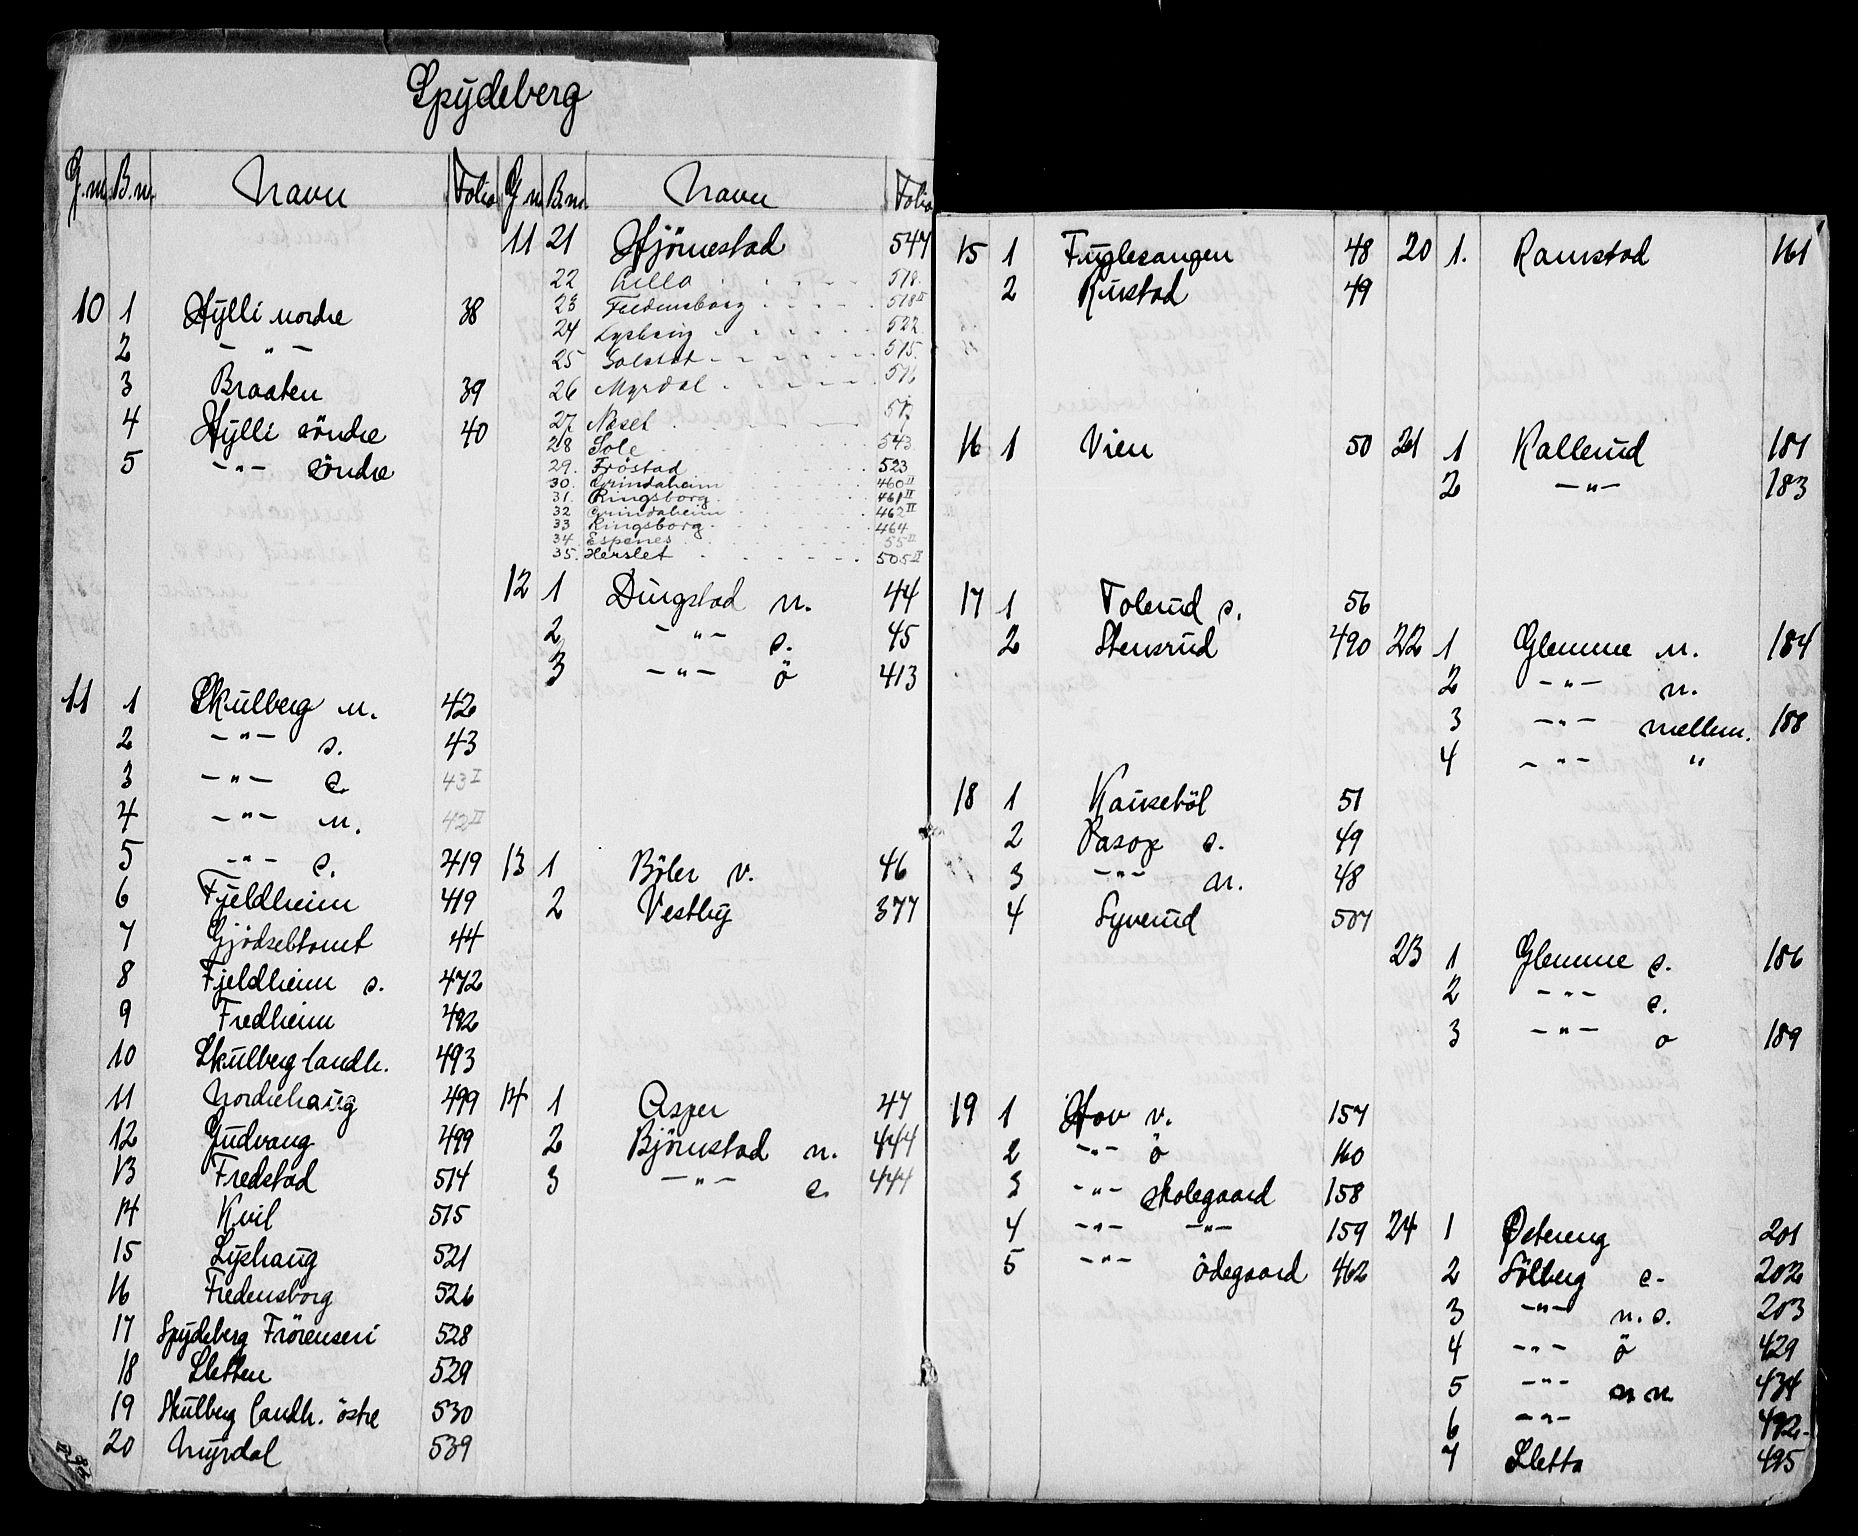 Spydeberg
G.nr. B.nr. Navn Folio
10 1 Hylli nordre 38
2 — " —
3 Braaten 39
4 Hylli söndre 40
5 — " — söndre
11 1 Skulberg n. 42
2 — " — s. 43
3 — " — s. 43 I
4 — " — n. 42 II
5 — " — s. 419
6 Fjeldheim 419
7 Gjödseltomt 44
8 Fjeldheim s. 472
9 Fredheim 492
10 Skulberg landh. 493
11 Nordrehaug 499
12 Gudvang 499
13 Fredstad 514
14 Kvil 515
15 Lyshaug 521
16 Fredensborg 526
17 Spydeberg Frörenseri 528
18 Sletten 529
19 Skulberg landh. östre 530
20 Myrdal 539
G.nr. B.nr. Navn Folio
11 21 Hjörnestad 547
22 Lilla 518
23 Fredensborg 518 II
24 Lysberg 522
25 Solstat 515
26 Myrdal
27 Neset
28 Sole 543
29. Fröstad 523
30. Grindaheim 460 II
31. Ringsborg 461 II
32 Grindaheim 462 II
33 Ringsborg 464
34. Espenes 55 II
35. Herslet 505 II
12 1 Dingstad n. 44
2 — " — s. 45
3 — " — ö 413
13 1 Byler v. 46
2 Vestby 377
14 1 Asper 47
2 Björnstad n. 444
3 — " — s. 444
15 1 Fuglesangen 48
2 Rustad 49
16 1 Vien 50
17 1 Tolerud s. 56
2 Stensrud 490
18 1 Kauseböl 51
2 Pasop s. 49
3 — " — n. 48
4 Lyverud 507
19 1 Hov v. 157
2 — " — ö 160
3 — " — Skolegaard 158
4 — " — — " — 159
5 — " — ödegaard 462
20 1. Ramstad 161
21 1 Kallerud 181
2 — " — 183
22 1 Glemme n. 184
2 — " — n.
3 — " — mellem. 188
4 — " — "
23 1 Glemme s. 186
2 — " — s.
3 — " — o 189
24 1 Östereng 201
2 Sölberg s. 202
3 — " — n. s. 203
4 — " — ö 429
5 — " — n n. 434
6 — " — 492
7 Sletta 495